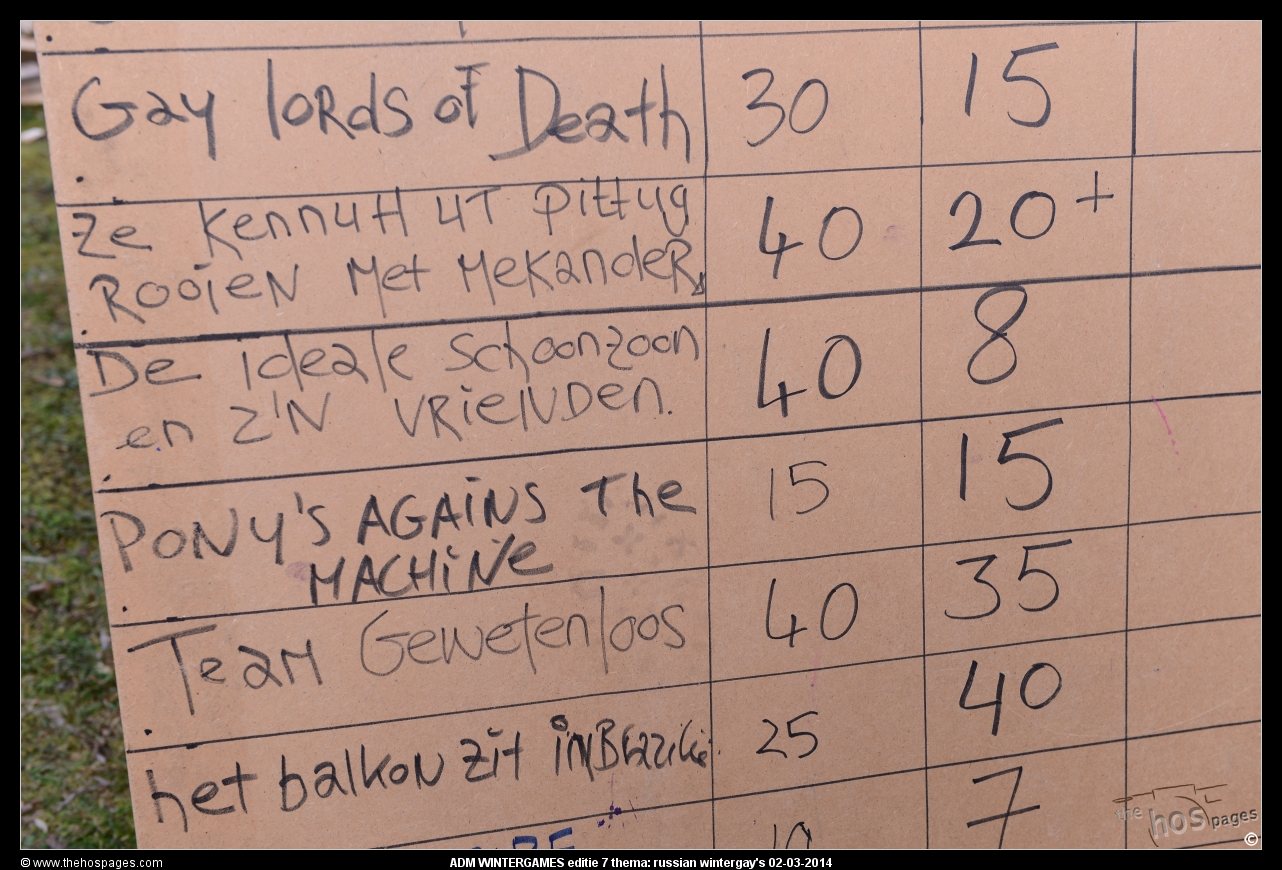 Gay lords of Death 30 15
Ze Kennuh ut pittug 40 20+
Rooien Met Mekander
De ideale schoonzoon 40 8
en z'n vrienden.
PONY'S AGAINS The 15 15
MACHINE
Team Gewetenloos 40 35
het balkon zit in 25 40
7
the hos pages
©
© www.thehospages.com
ADM WINTERGAMES editie 7 thema: russian wintergay's 02-03-2014